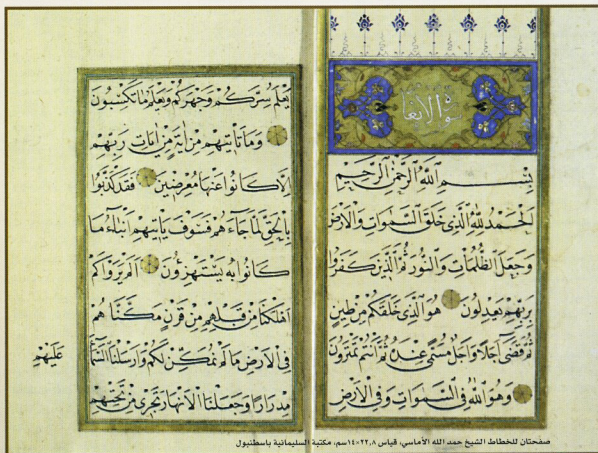 سورة الانعام
بِسْمِ اللهِ الرَّحْمٰنِ الرَّحِيمِ
اَلْحَمْدُ لِلّٰهِ الَّذِي خَلَقَ السَّمٰوَاتِ وَالْاَرْضَ
وَجَعَلَ الظُّلُمَاتِ وَالنُّورَ ثُمَّ الَّذِينَ كَفَرُوا
بِرَبِّهِمْ يَعْدِلُونَ هُوَ الَّذِي خَلَقَكُمْ مِنْ طِينٍ
ثُمَّ قَضٰى اَجَلًا وَاَجَلٌ مُسَمًّى عِنْدَهُ ثُمَّ اَنْتُمْ تَمْتَرُونَ
وَهُوَ اللهُ فِي السَّمٰوَاتِ وَفِي الْاَرْضِ
يَعْلَمُ سِرَّكُمْ وَجَهْرَكُمْ وَيَعْلَمُ مَا تَكْسِبُونَ
وَمَا تَأْتِيهِمْ مِنْ اٰيَةٍ مِنْ اٰيَاتِ رَبِّهِمْ
اِلَّا كَانُوا عَنْهَا مُعْرِضِينَ فَقَدْ كَذَّبُوا
بِالْحَقِّ لَمَّا جَاءَهُمْ فَسَوْفَ يَأْتِيهِمْ اَنْبٰؤُا مَا
كَانُوا بِهِ يَسْتَهْزِؤُنَ اَلَمْ يَرَوْا كَمْ
اَهْلَكْنَا مِنْ قَبْلِهِمْ مِنْ قَرْنٍ مَكَّنَّاهُمْ
فِي الْاَرْضِ مَا لَمْ نُمَكِّنْ لَكُمْ وَاَرْسَلْنَا السَّمَاءَ
عَلَيْهِمْ
مِدْرَارًا وَجَعَلْنَا الْاَنْهَارَ تَجْرِي مِنْ تَحْتِهِمْ
صفحتان للخطاط الشيخ حمد الله الأماسي، قياس ٢٢,٨×١٤سم، مكتبة السليمانية باسطنبول